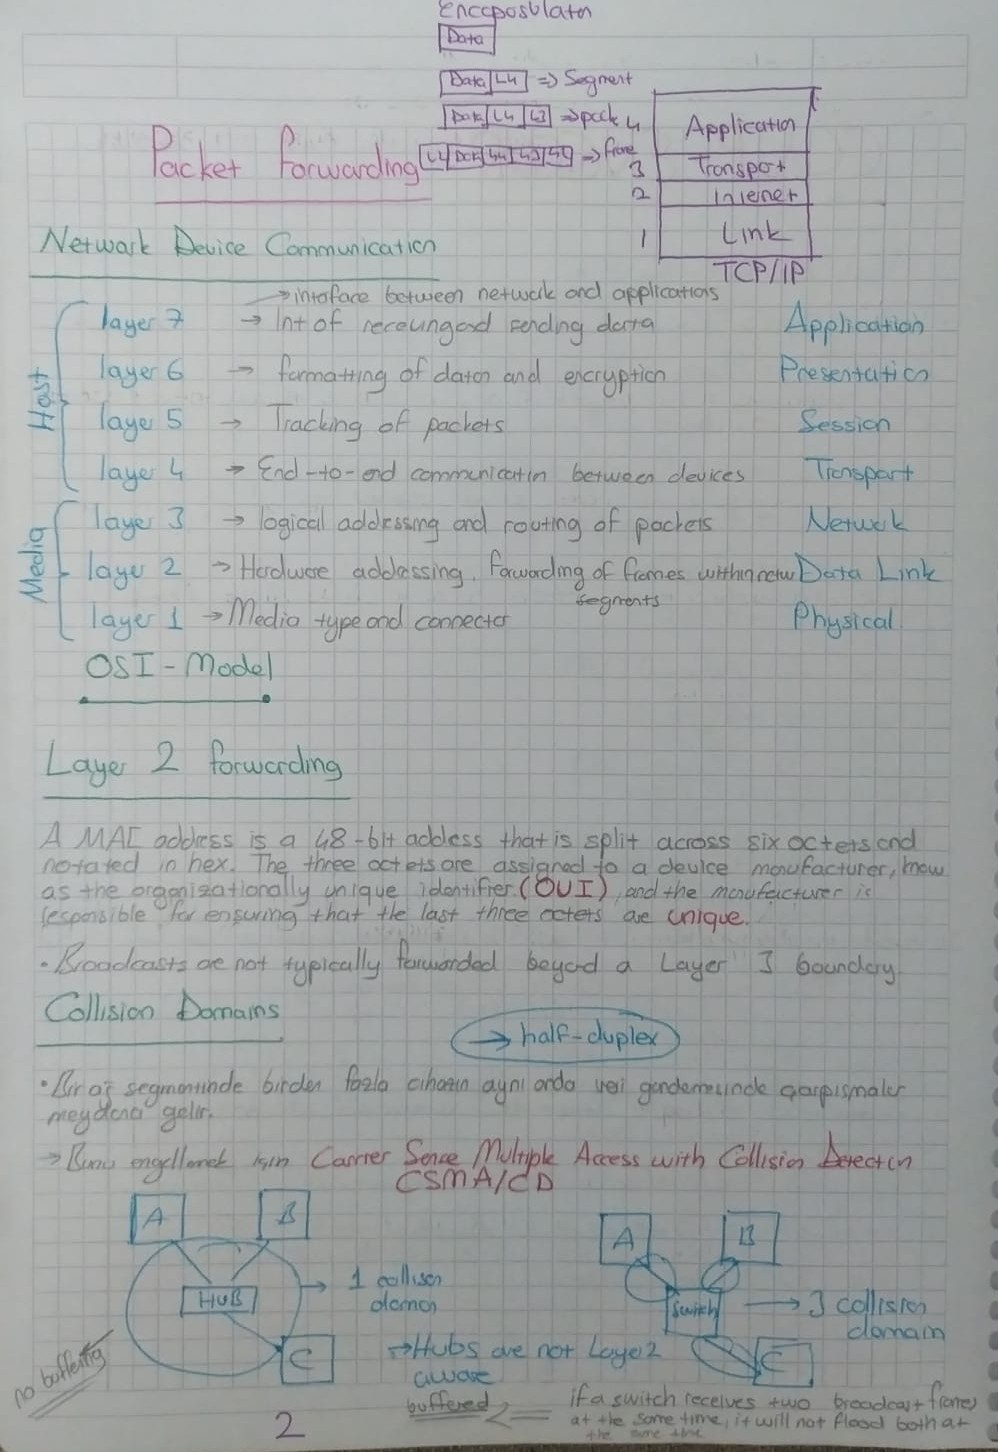 Encaposulaton
Data
Data L4 => Segment
Data L4 L3 => pack
L2 Data L4 L3 => frame
4 Application
3 Transport
2 Internet
1 Link
TCP/IP
Packet Forwarding
Network Device Communication
→ interface between network and applications
layer 7 → Int of receiving and sending data Application
layer 6 → formatting of data and encryption Presentation
layer 5 → Tracking of packets Session
layer 4 → End-to-end communication between devices Transport
Host
layer 3 → logical addressing and routing of packets Network
layer 2 → Hardware addressing. Forwarding of frames within netw Data Link
segments
layer 1 → Media type and connector Physical
Media
OSI-Model
Layer 2 forwarding
A MAC address is a 48-bit address that is split across six octets and
notated in hex. The three octets are assigned to a device manufacturer, know
as the organizationally unique identifier (OUI), and the manufacturer is
responsible for ensuring that the last three octets are unique.
• Broadcasts are not typically forwarded beyond a Layer 3 boundary
Collision Domains
→ half-duplex
• Bir ağ segmentinde birden fazla cihazın aynı anda veri göndermesinde çarpışmalar
meydana gelir.
→ Bunu engellemek için Carrier Sence Multiple Access with Collision Detection
CSMA/CD
A B
HUB
C
→ 1 collision
domain
→ Hubs are not Layer 2
aware
no buffering
A B
Switch
C
→ 3 collision
domain
buffered <= if a switch receives two broadcast frames
at the same time, it will not flood both at
the same time
2